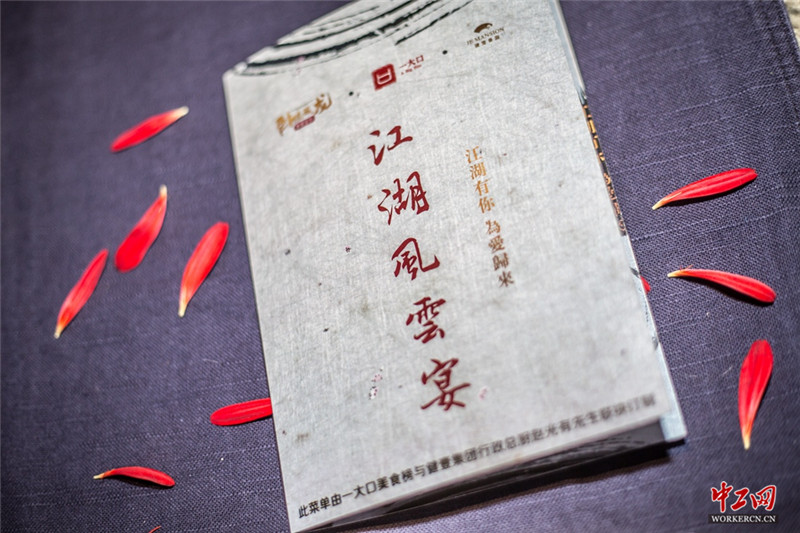 一大口
江湖風雲宴
江湖有你 為愛歸來
此菜单由一大口美食榜与健壹集团行政总厨赵光有先生联袂订制
中工网
WORKERCN.CN